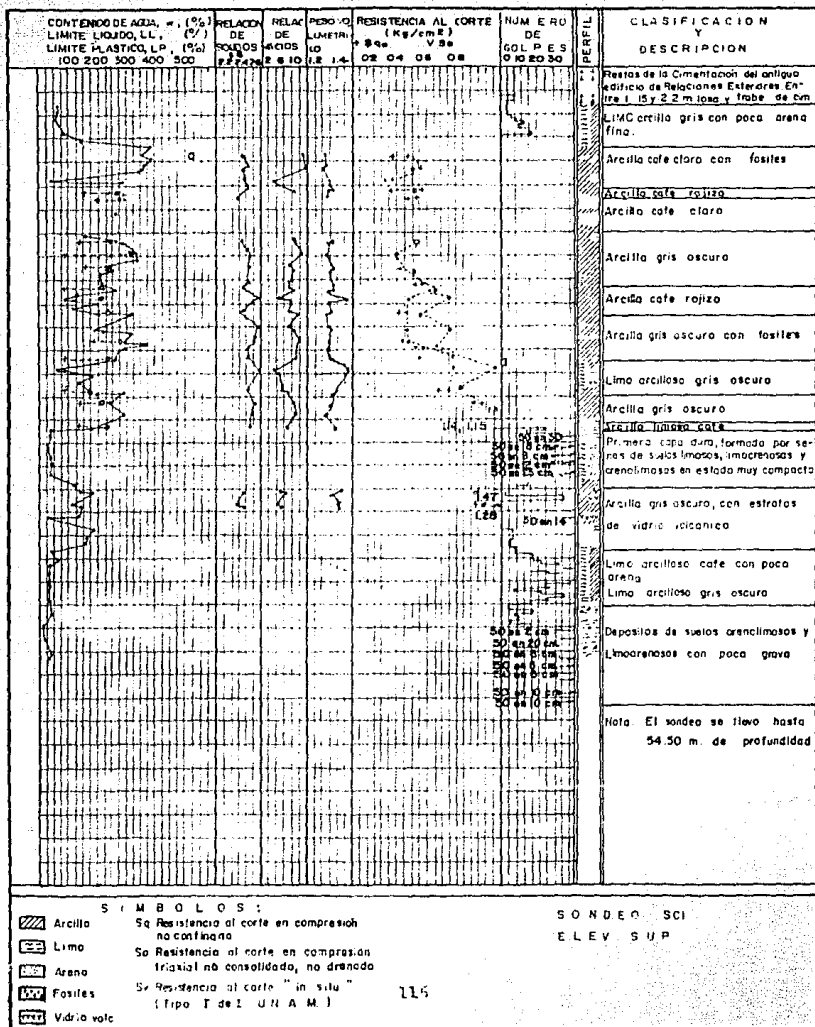 CONTENIDO DE AGUA, w, (%)
LIMITE LIQUIDO, LL, (%)
LIMITE PLASTICO, LP, (%)
100 200 300 400 500
RELACION
DE
SOLIDOS
RELAC
DE
VACIOS
2 6 10
PESO VO
LUMETRI
LO
1.2 1.4
RESISTENCIA AL CORTE
(Kg/cm2)
02 04 06 08
NUMERO
DE
GOLPES
0 10 20 30
PERFIL
CLASIFICACION
Y
DESCRIPCION
Restos de la Cimentacion del antiguo
edificio de Relaciones Exteriores En-
tre 1.15 y 2.2 m losa y trabe de cim
arcilla gris con poca arena
fina.
Arcilla cafe claro con fosiles
Arcilla cafe rojizo
Arcilla cafe claro
Arcilla gris oscuro
Arcilla cafe rojizo
Arcilla gris oscuro con fosiles
Limo arcilloso gris oscuro
Arcilla gris oscuro
Arcilla limosa cafe
1.4, 1.15
Primera capa dura, formada por se-
ries de suelos limosos, limoarenosos y
arenolimosos en estado muy compacto
1.47
1.28
50 en 14
Arcilla gris oscuro, con estratos
de vidrio volcanico
Limo arcilloso cafe con poca
arena
Limo arcilloso gris oscuro
50 en 2 cm
50 en 20 cm
50 en 10 cm
50 en 10 cm
Depositos de suelos arenolimosos y
Limoarenosos con poca grava
Nota. El sondeo se llevo hasta
54.50 m. de profundidad
SIMBOLOS:
Arcilla
Limo
Arena
Fosiles
Vidrio volc
Sq Resistencia al corte en compresion
no confinana
Sa Resistencia al corte en compresion
triaxial no consolidado, no drenado
Sv Resistencia al corte "in situ"
(Tipo I de I U N A M.)
116
SONDEO SC1
ELEV SUP